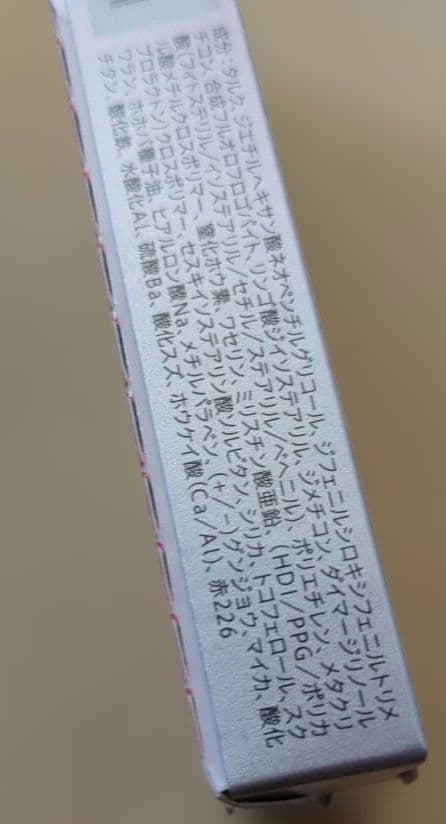 成分：タルク、ジエチルヘキサン酸ネオペンチルグリコール、ジフェニルシロキシフェニルトリメ
チコン、合成フルオロフロゴパイト、リンゴ酸ジイソステアリル、ジメチコン、ダイマージリノール
酸(フィトステリル/イソステアリル/セチル/ステアリル/ベヘニル)、ポリエチレン、メタクリ
ル酸メチルクロスポリマー、窒化ホウ素、ワセリン、ミリスチン酸亜鉛、(HDI/PPG/ポリカ
プロラクトン)クロスポリマー、セスキイソステアリン酸ソルビタン、シリカ、トコフェロール、スク
ワラン、ホホバ種子油、ヒアルロン酸Na、メチルパラベン、(+/-)グンジョウ、マイカ、酸化
チタン、酸化鉄、水酸化Al、硫酸Ba、酸化スズ、ホウケイ酸(Ca/Al)、赤226